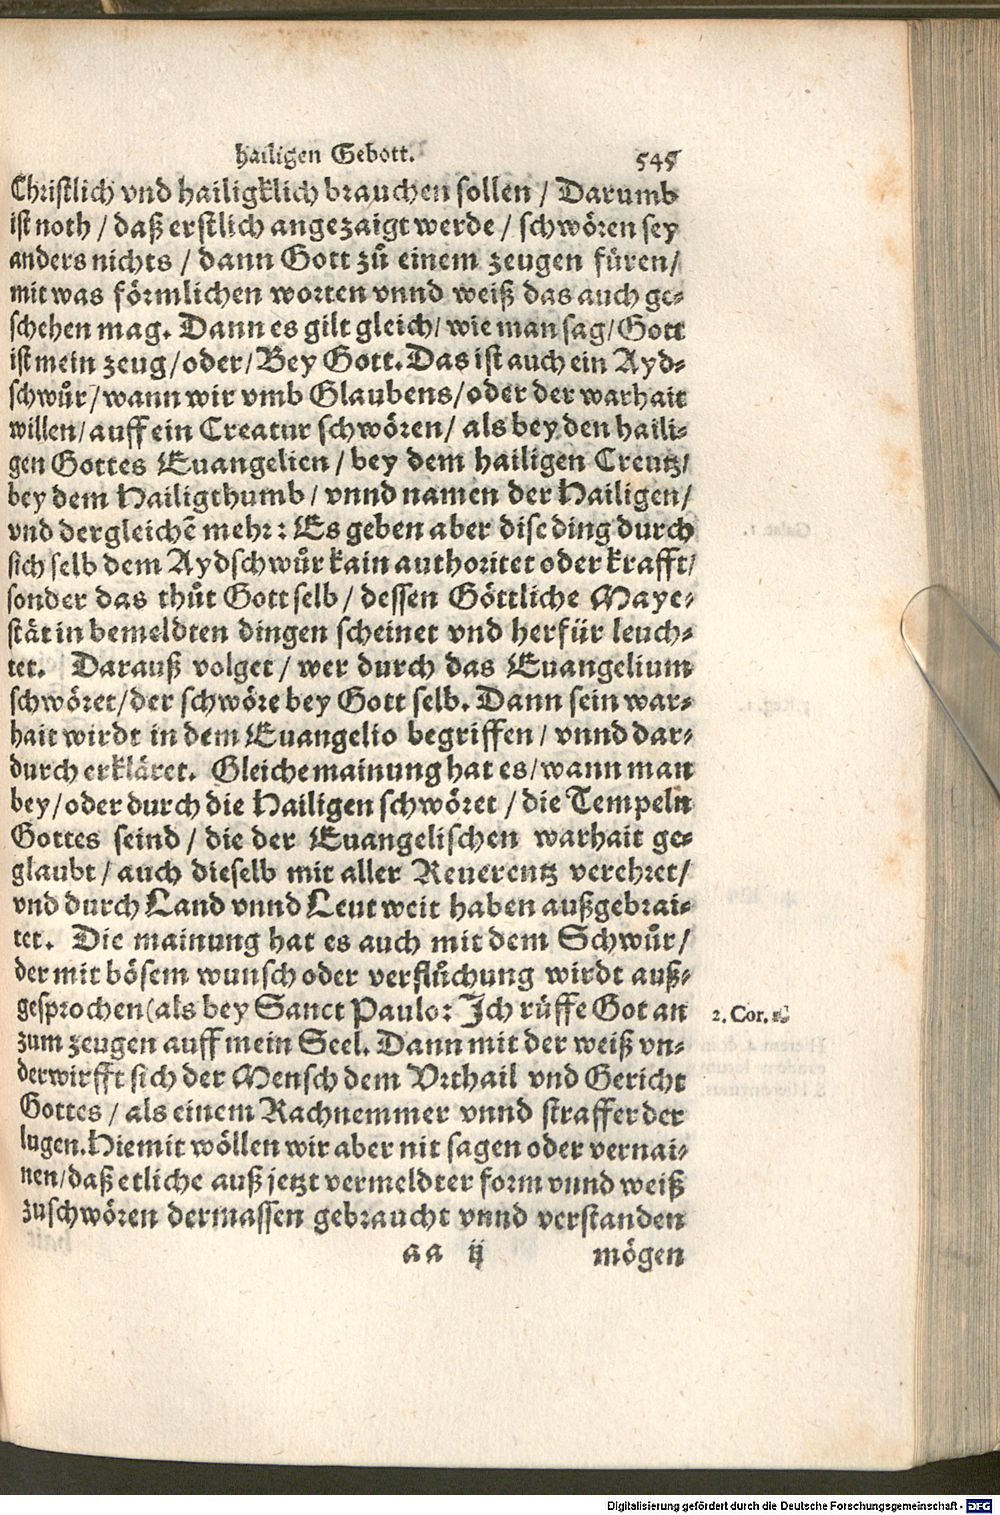 hailigen Gebott. 545
Christlich vnd hailigklich brauchen sollen / Darumb
ist noth / daß erstlich angezaigt werde / schwören sey
anders nichts / dann Gott zů einem zeugen füren /
mit was förmlichen worten vnnd weiß das auch ge-
schehen mag. Dann es gilt gleich / wie man sag / Gott
ist mein zeug / oder / Bey Gott. Das ist auch ein Ayd-
schwůr / wann wir vmb Glaubens / oder der warhait
willen / auff ein Creatur schwören / als bey den haili-
gen Gottes Euangelien / bey dem hailigen Creutz /
bey dem Hailigthumb / vnnd namen der Hailigen /
vnd dergleichẽ mehr: Es geben aber dise ding durch
sich selb dem Aydschwůr kain authoritet oder krafft /
sonder das thůt Gott selb / dessen Göttliche Maye-
stät in bemeldten dingen scheinet vnd herfür leuch-
tet. Darauß volget / wer durch das Euangelium
schwöret / der schwöre bey Gott selb. Dann sein war-
hait wirdt in dem Euangelio begriffen / vnnd dar-
durch erkläret. Gleiche mainung hat es / wann man
bey / oder durch die Hailigen schwöret / die Tempeln
Gottes seind / die der Euangelischen warhait ge-
glaubt / auch dieselb mit aller Reuerentz verehret /
vnd durch Land vnnd Leut weit haben außgebrai-
tet. Die mainung hat es auch mit dem Schwůr /
der mit bösem wunsch oder verflůchung wirdt auß-
gesprochen (als bey Sanct Paulo: Ich rüffe Got an
2. Cor.
zum zeugen auff mein Seel. Dann mit der weiß vn-
derwirfft sich der Mensch dem Vrthail vnd Gericht
Gottes / als einem Rachnemmer vnnd straffer der
lugen. Hiemit wöllen wir aber nit sagen oder vernai-
nen / daß etliche auß jetzt vermeldter form vnnd weiß
zuschwören dermassen gebraucht vnnd verstanden
aa ij mögen
Digitalisierung gefördert durch die Deutsche Forschungsgemeinschaft - DFG